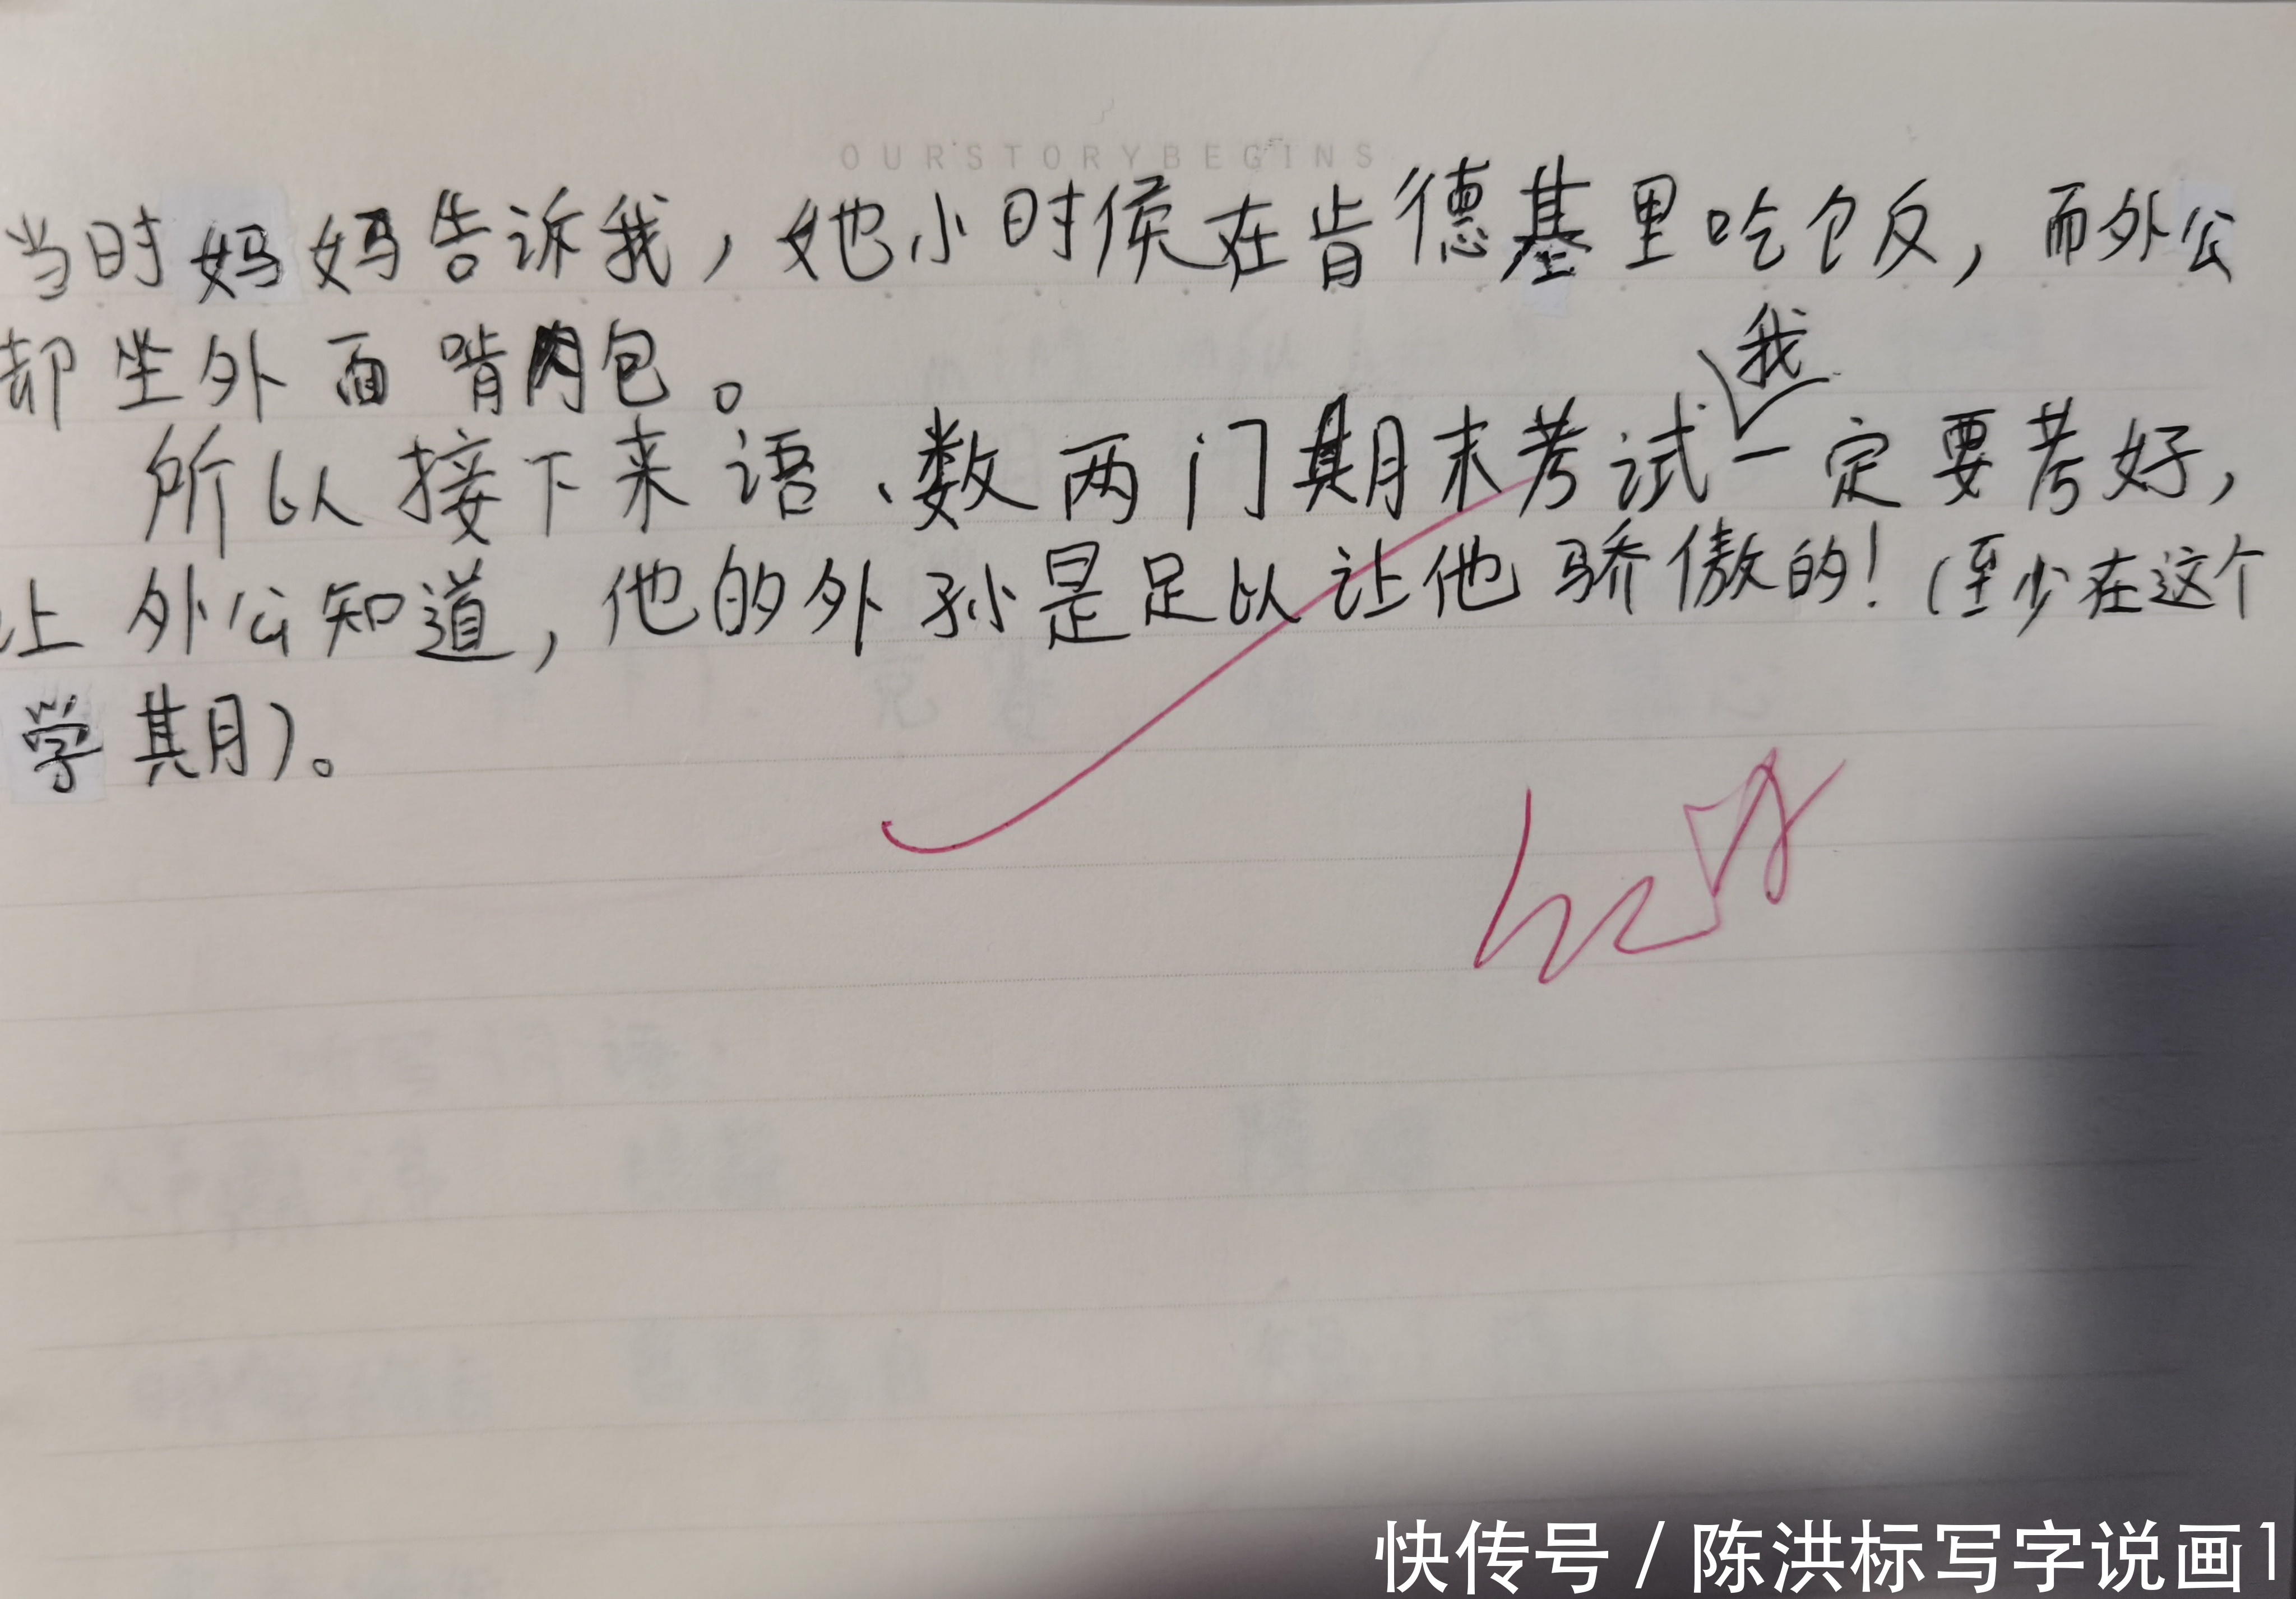 OURSTORYBEGINS
当时妈妈告诉我，她小时侯在肯德基里吃饭，而外公
却坐外面啃肉包。
我
所以接下来语、数两门期末考试一定要考好，
让外公知道，他的外孙是足以让他骄傲的！（至少在这个
学期）。
快传号/陈洪标写字说画1